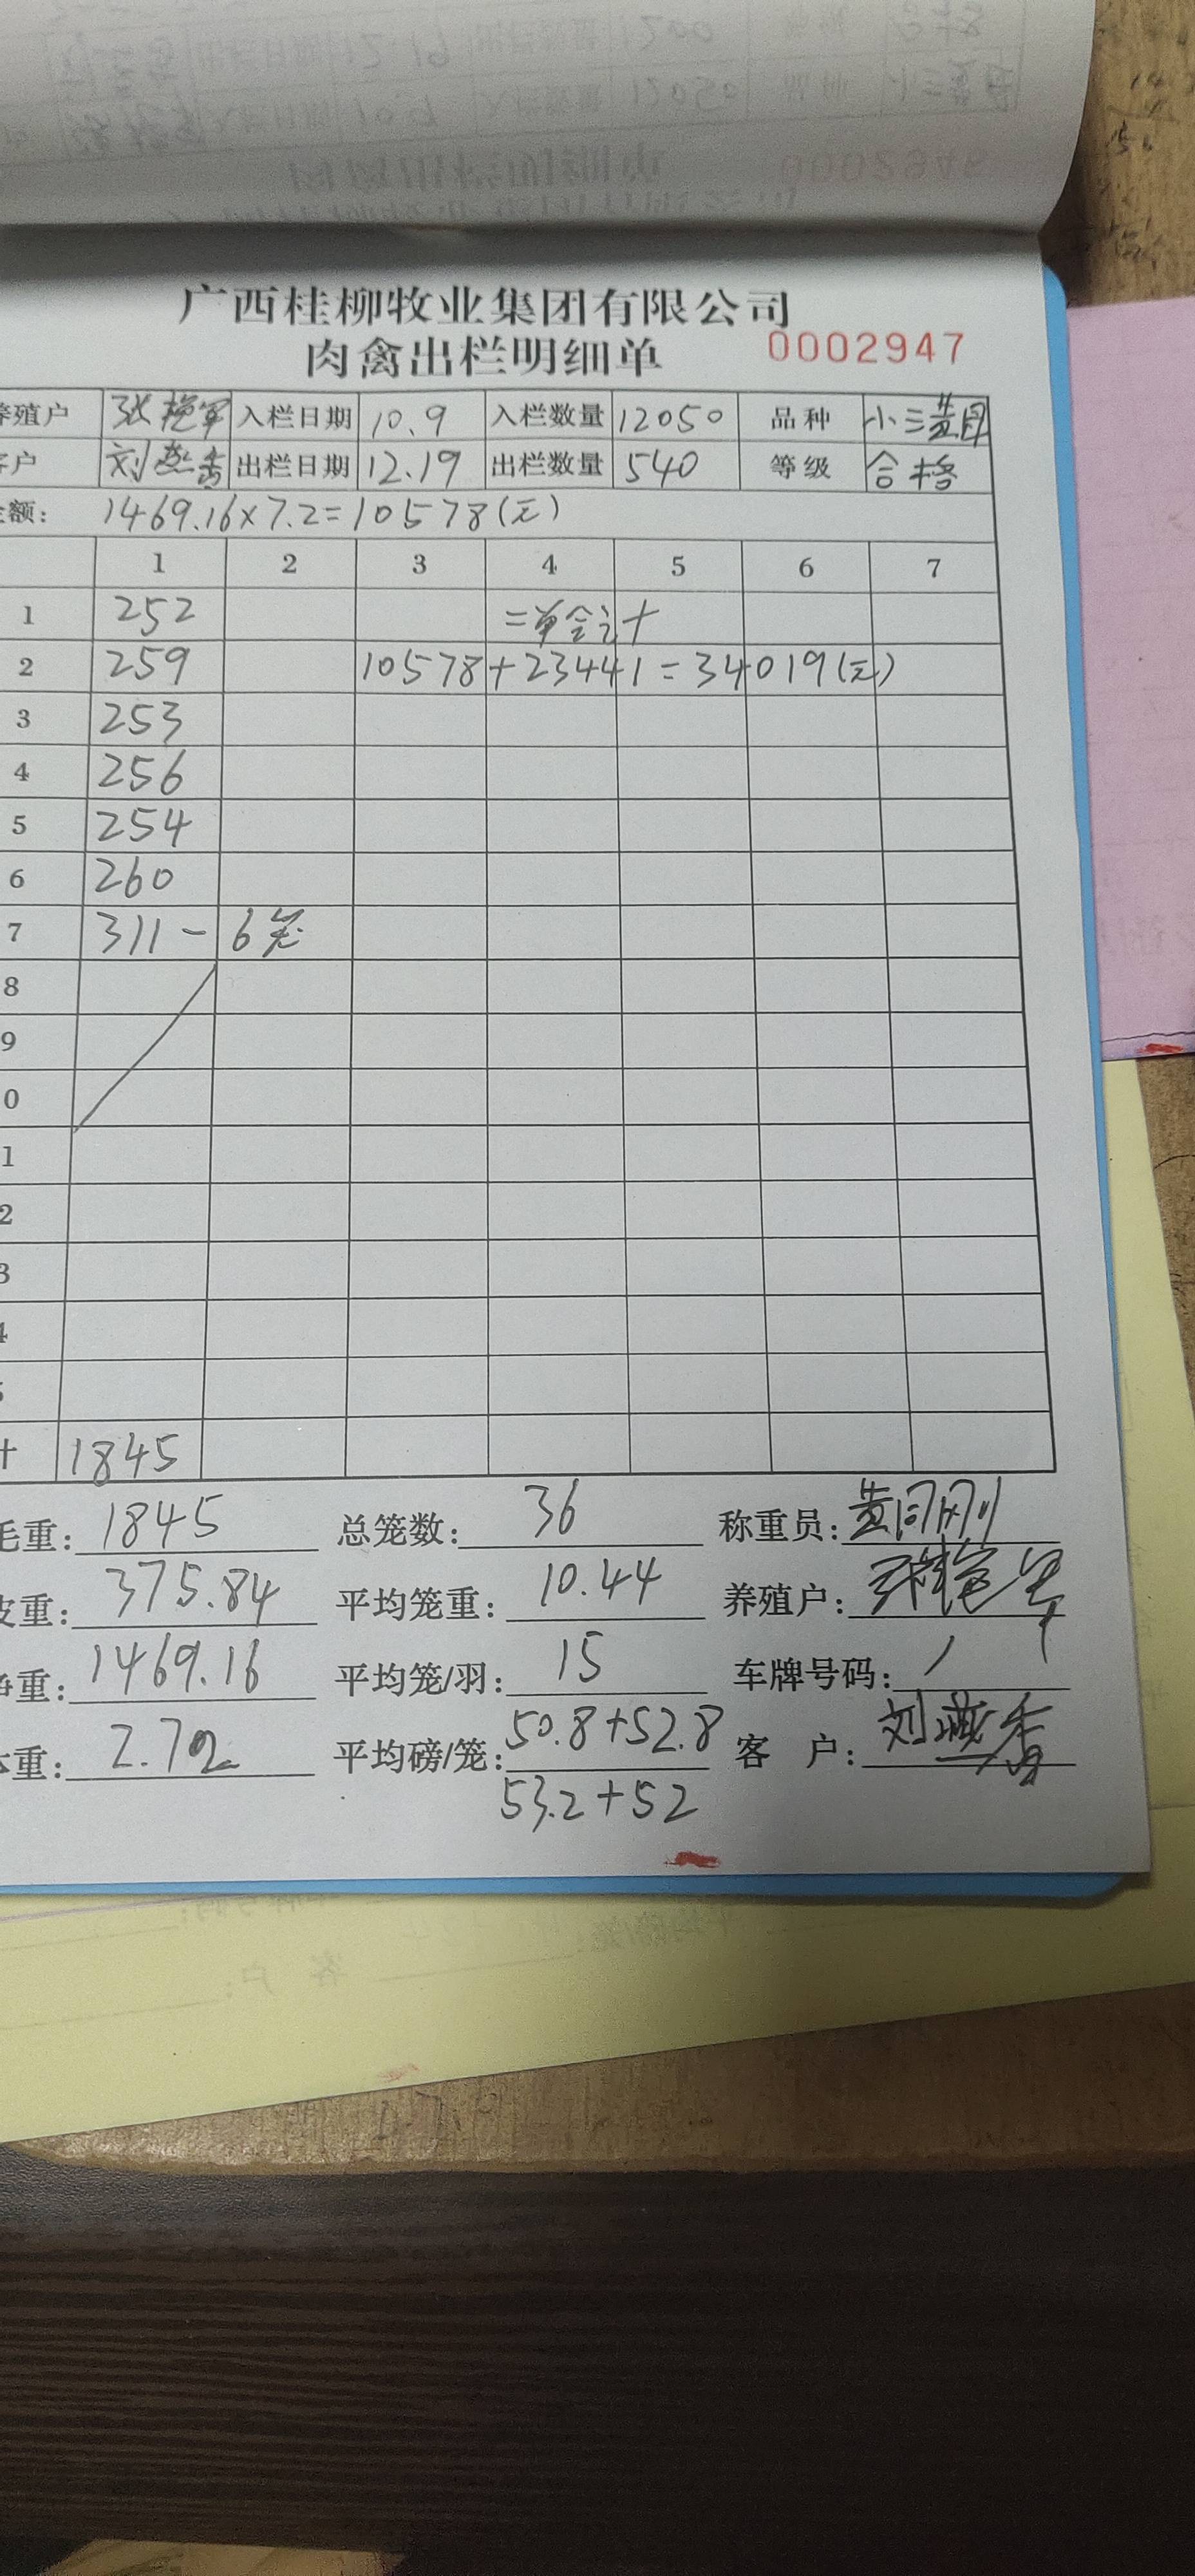 广西桂柳牧业集团有限公司
肉禽出栏明细单 0002947
养殖户 张艳军 入栏日期 10.9 入栏数量 12050 品种 小三黄母
客户 刘燕香 出栏日期 12.19 出栏数量 540 等级 合格
金额: 1469.16×7.2=10578(元)
1 2 3 4 5 6 7
1 252 二单合计
2 259 10578+23441=34019(元)
3 253
4 256
5 254
6 260
7 311-6笼
8
9
0
1
2
3
4
5
计 1845
毛重: 1845 总笼数: 36 称重员: 黄同刚
皮重: 375.84 平均笼重: 10.44 养殖户: 张艳军
净重: 1469.16 平均笼/羽: 15 车牌号码: /
体重: 2.72 平均磅/笼: 50.8+52.8 客户: 刘燕香
53.2+52